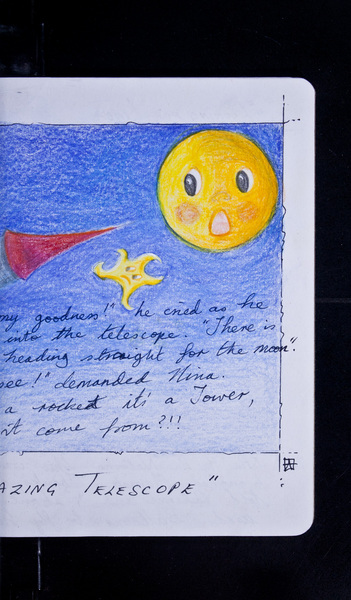 my goodness!" he cried as he
into the telescope. "There is
heading straight for the moon".
see!" demanded Nina.
a rocket it's a Tower,
it come from?!!
AZING TELESCOPE"